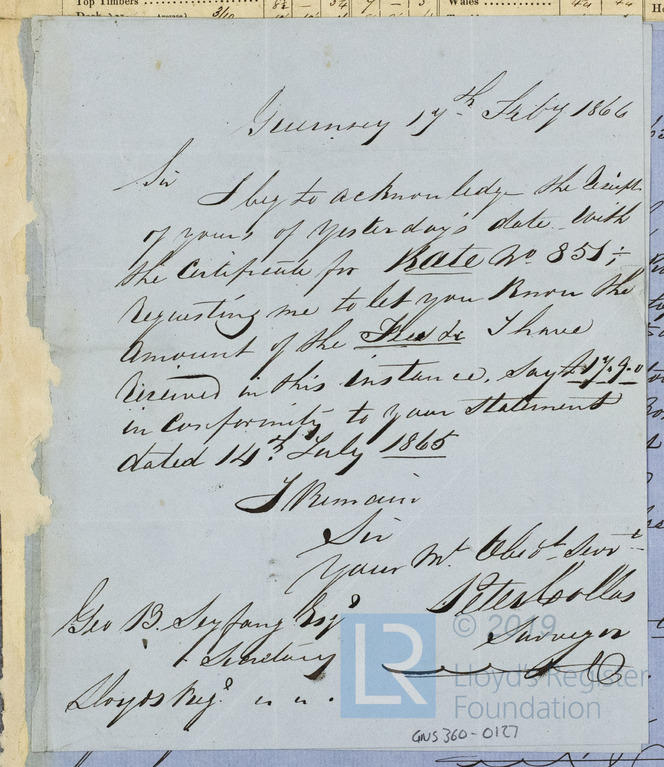 Top Timbers
Wales
Guernsey 17th Feby 1866
Sir I beg to acknowledge the receipt
of yours of yesterday's date with
the Certificate for Kate No 851
requesting me to let you Know the
Amount of the I have
received in this instance, Say £17.9.0
in Conformity to your Statement
dated 14th July 1865
I Remain
Sir
Your Mt Obedt Servt
Peter Collas
Geo B. Seyfang Esqr
Surveyor
Secretary
Lloyds Regr " " .
© 2019
LR
Lloyd's Register
Foundation
GNS360-0127